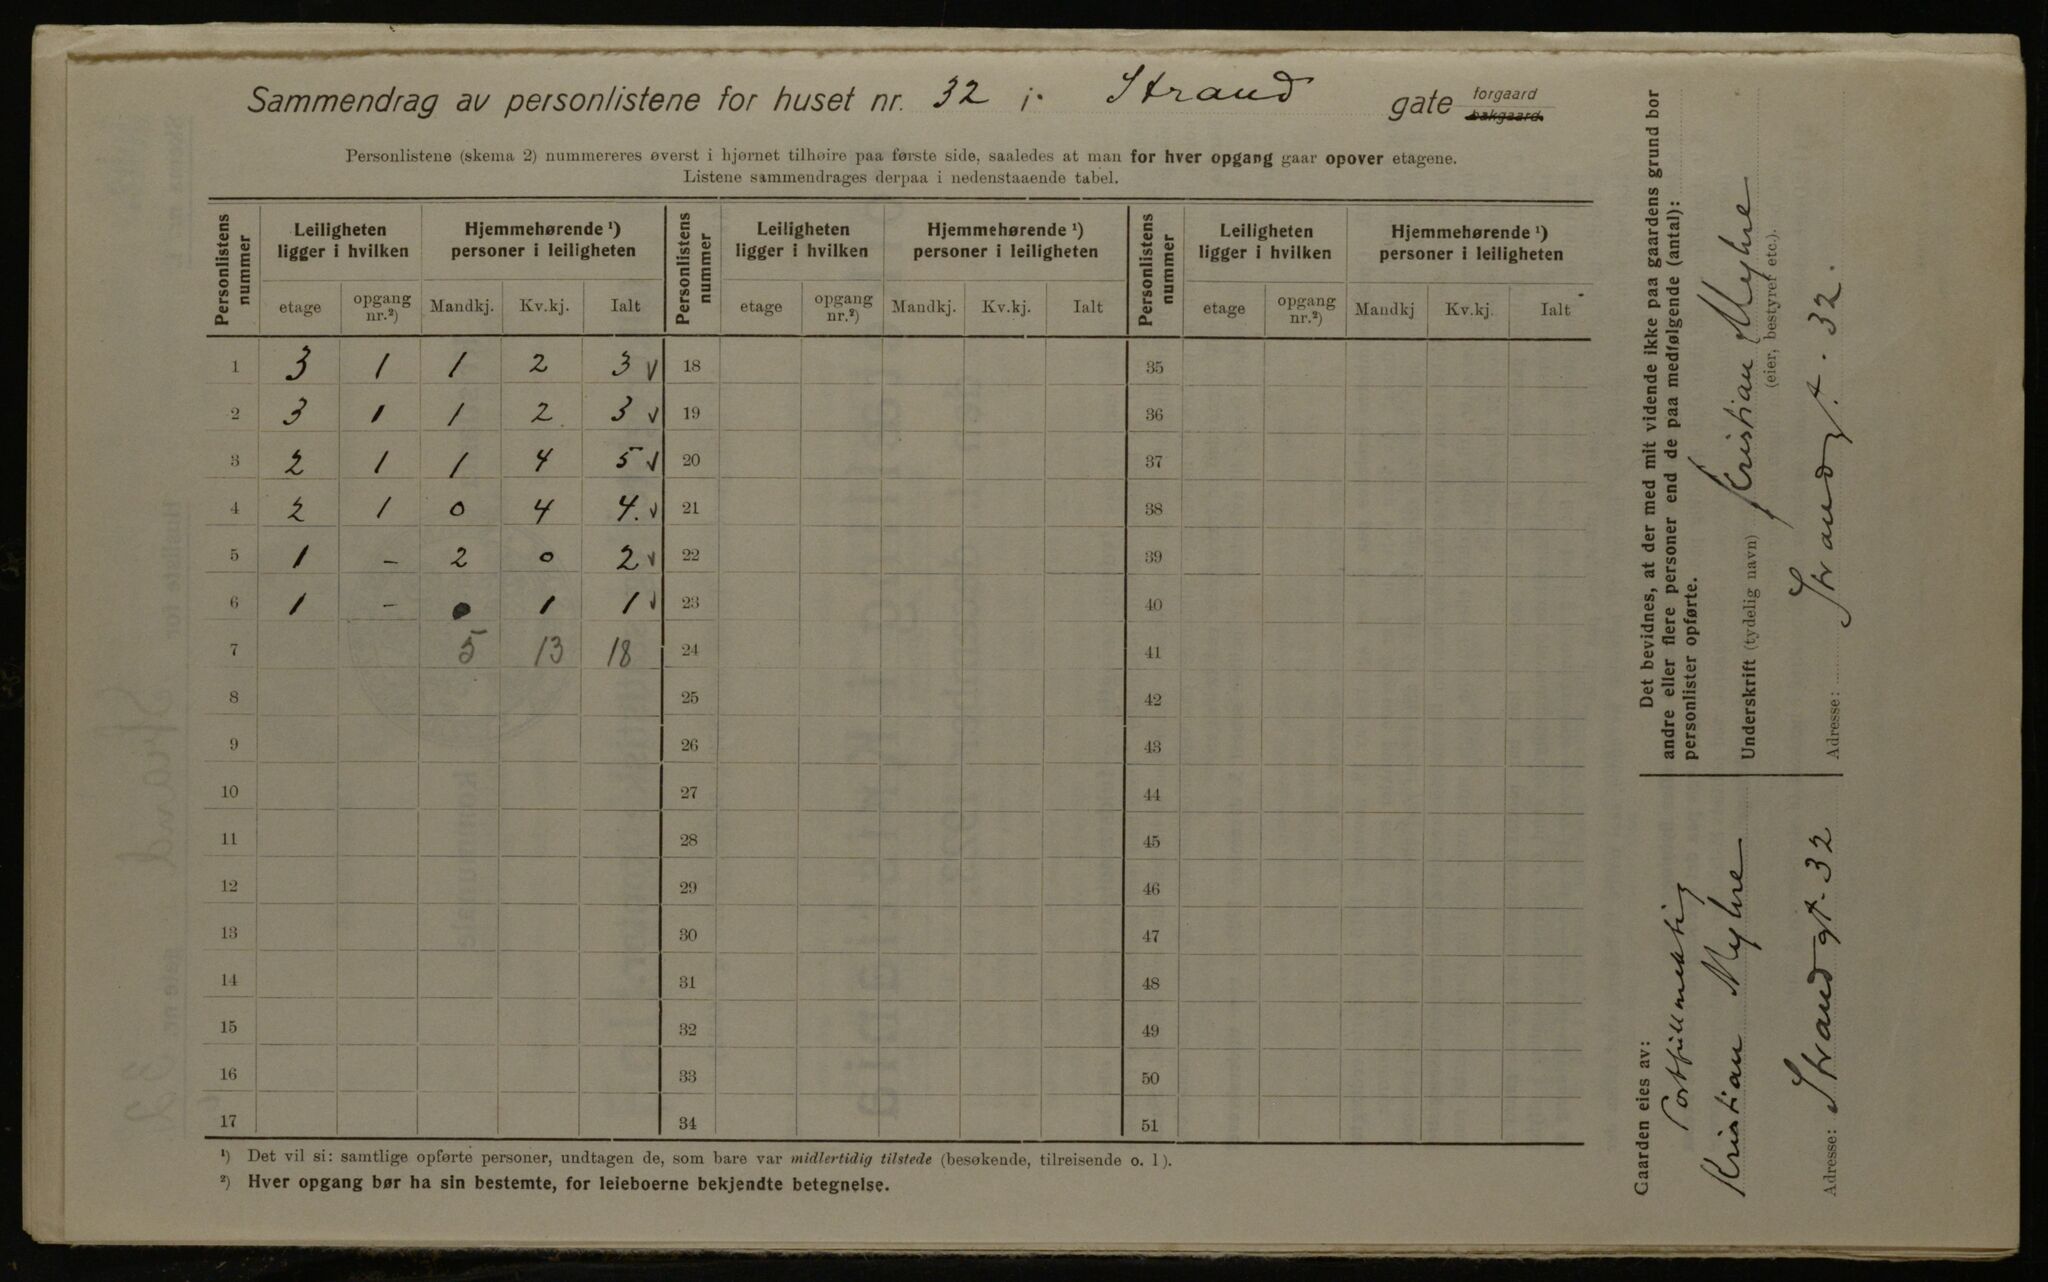 Sammendrag av personlistene for huset nr. 32 i Strand gate forgaard bakgaard.
Personlistene (skema 2) nummereres øverst i hjørnet tilhøire paa første side, saaledes at man for hver opgang gaar opover etagene.
Listene sammendrages derpaa i nedenstaaende tabel.
Personlistens nummer | Leiligheten ligger i hvilken | Hjemmehørende ¹) personer i leiligheten | Personlistens nummer | Leiligheten ligger i hvilken | Hjemmehørende ¹) personer i leiligheten | Personlistens nummer | Leiligheten ligger i hvilken | Hjemmehørende ¹) personer i leiligheten
etage | opgang nr.²) | Mandkj. | Kv.kj. | Ialt | etage | opgang nr.²) | Mandkj. | Kv.kj. | Ialt | etage | opgang nr.²) | Mandkj | Kv.kj. | Ialt
1 3 1 1 2 3 √ 18 35
2 3 1 1 2 3 √ 19 36
3 2 1 1 4 5 √ 20 37
4 2 1 0 4 4. √ 21 38
5 1 – 2 0 2 √ 22 39
6 1 – 0 1 1 √ 23 40
7 5 13 18 24 41
8 25 42
9 26 43
10 27 44
11 28 45
12 29 46
13 30 47
14 31 48
15 32 49
16 33 50
17 34 51
¹) Det vil si: samtlige opførte personer, undtagen de, som bare var midlertidig tilstede (besøkende, tilreisende o. l).
²) Hver opgang bør ha sin bestemte, for leieboerne bekjendte betegnelse.
Det bevidnes, at der med mit vidende ikke paa gaardens grund bor
andre eller flere personer end de paa medfølgende (antal):
personlister opførte.
Underskrift (tydelig navn) Kristian Myhre
(eier, bestyrer etc.).
Adresse: Strandgt. 32.
Gaarden eies av:
Postfullmektig
Kristian Myhre
Adresse: Strandgt. 32